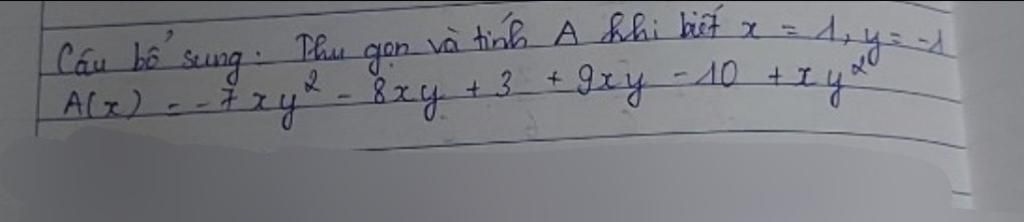 Câu bổ sung: Thu gọn và tính A khi biết x = 1, y = -1
A(x) = -7xy² - 8xy + 3 + 9xy - 10 + xy²